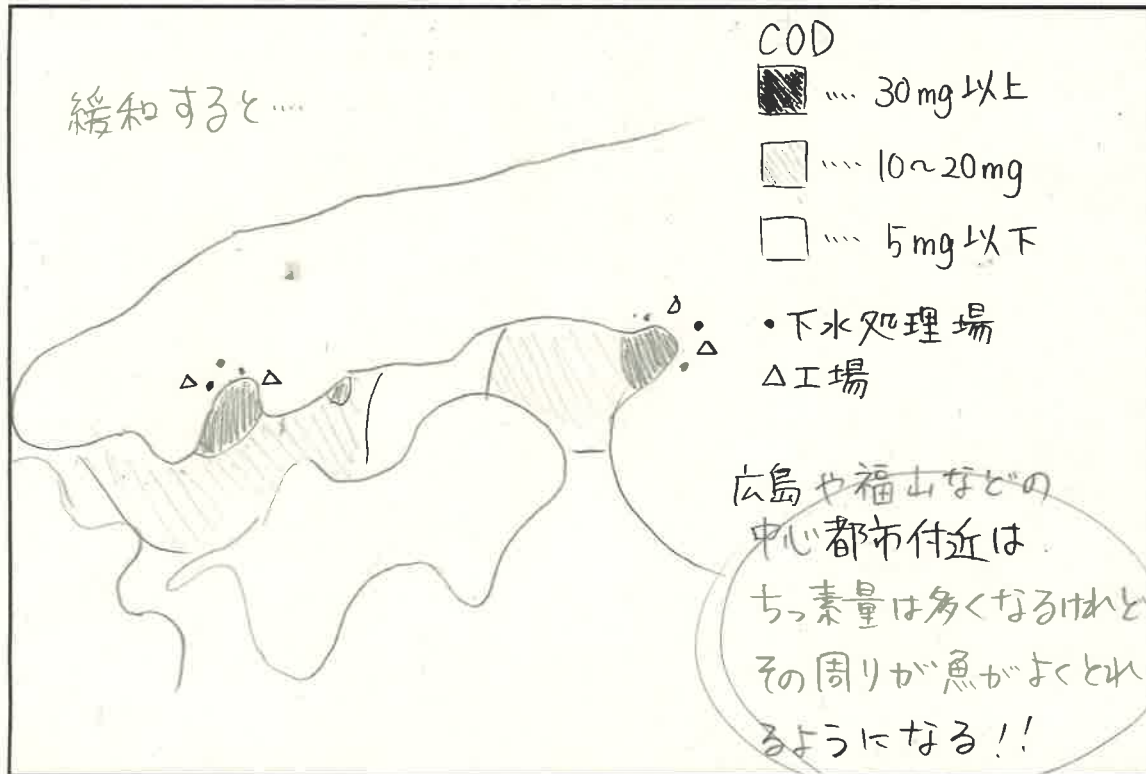 緩和すると....
COD
.... 30mg以上
.... 10~20mg
.... 5mg以下
•下水処理場
△工場
広島や福山などの
中心都市付近は
ちっ素量は多くなるけれど
その周りが魚がよくとれ
るようになる!!